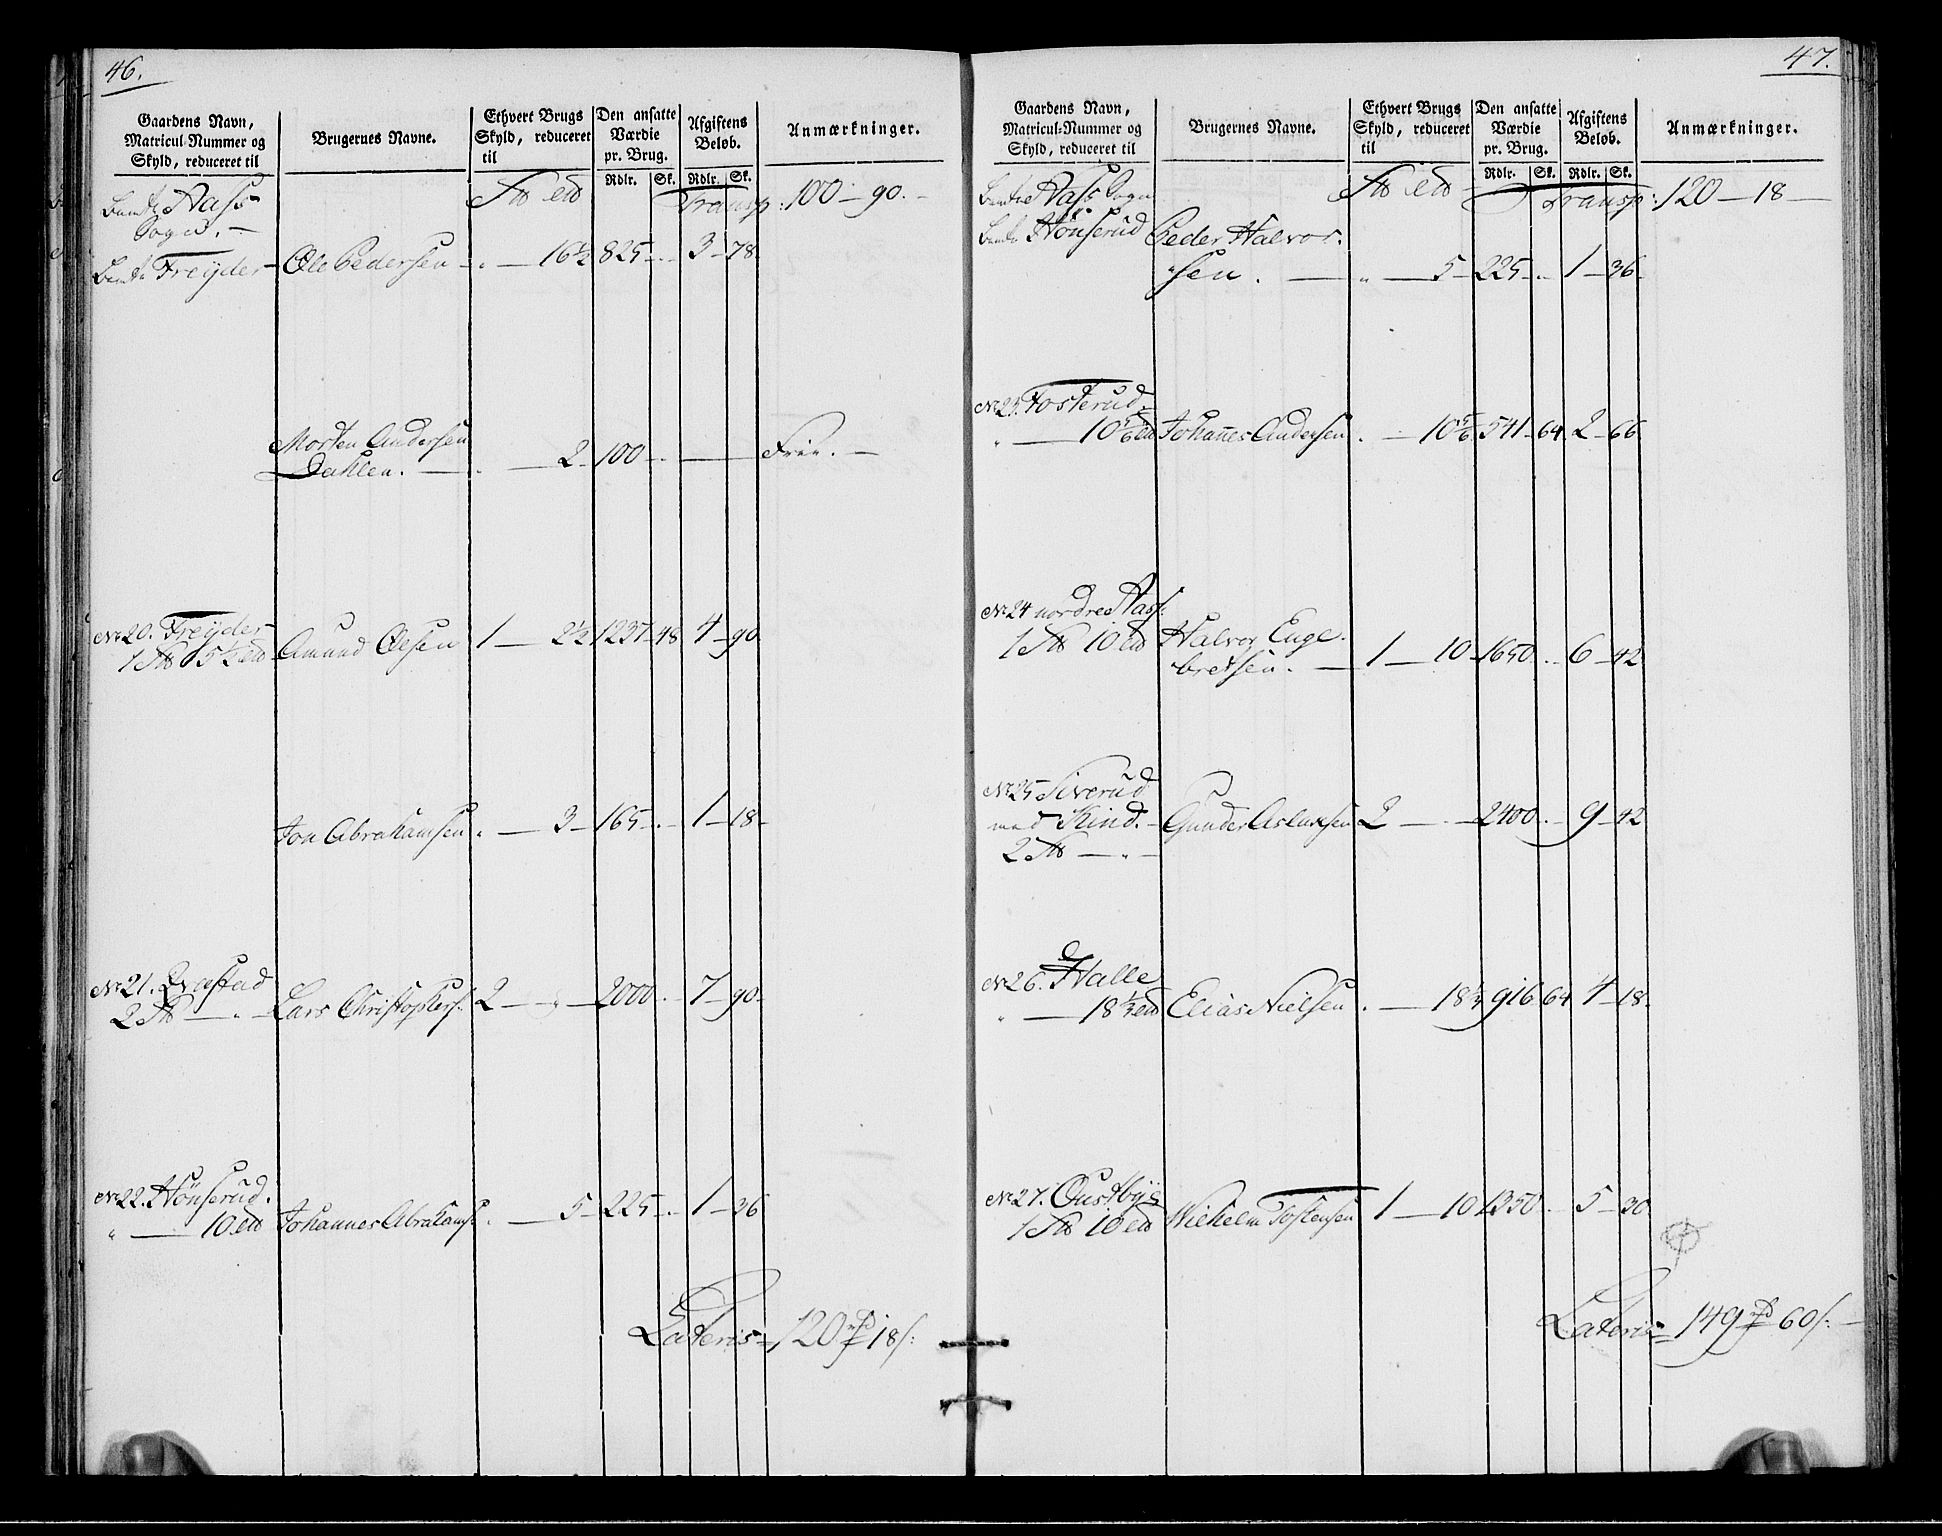 46.
Gaardens Navn, Matricul-Nummer og Skyld, reduceret til | Brugernes Navne. | Ethvert Brugs Skyld, reduceret til | Den ansatte Værdie pr. Brug. Rdlr. Sk. | Afgiftens Beløb. Rdlr. Sk. | Anmærkninger.
Aass Transp: 100 - 90.
Sogn.
Freyder Ole Pedersen " 16½ 825 - " 3 - 78
Morten Andersen
Dahlen. " 2 100 - " Frie.
No 20. Freyder
1 5½ Amund Olsen 1 2½ 1237 - 48 4 - 90
Jon Abrahamsen " 3 165 - " 1 - 18
No 21. Qvastad
2 " Lars Christophers: 2 " 2000 - " 7 - 90
No 22. Hönserud.
" 10 Johannes Abrahams: " 5 225 - " 1 - 36
Lateris = 120 rd 18 s:
47.
Gaardens Navn, Matricul-Nummer og Skyld, reduceret til | Brugernes Navne. | Ethvert Brugs Skyld, reduceret til | Den ansatte Værdie pr. Brug. Rdlr. Sk. | Afgiftens Beløb. Rdlr. Sk. | Anmærkninger.
Aass Sogn Transp: 120 - 18
Hönserud Peder Halvor-
sen. " 5 225 - " 1 - 36
No 23. Tosterud
" 10 5/6 Johannes Andersen " 10 5/6 541 - 64 2 - 66
No 24 nordre Aass:
1 10 Halvor Enge-
bretsen. 1 10 1650 - " 6 - 42
No 25 Siverud
med Kind. Gunder Aslaksen 2 " 2400 - " 9 - 42
2 "
No 26. Halle
" 18⅓ Elias Nielsen " 18⅓ 916 64 4 - 18
No 27. Oustbye
1 10 Wilhelm Tostensen 1 10 1350 - " 5 - 30
Lateris = 149 rd 60 s: